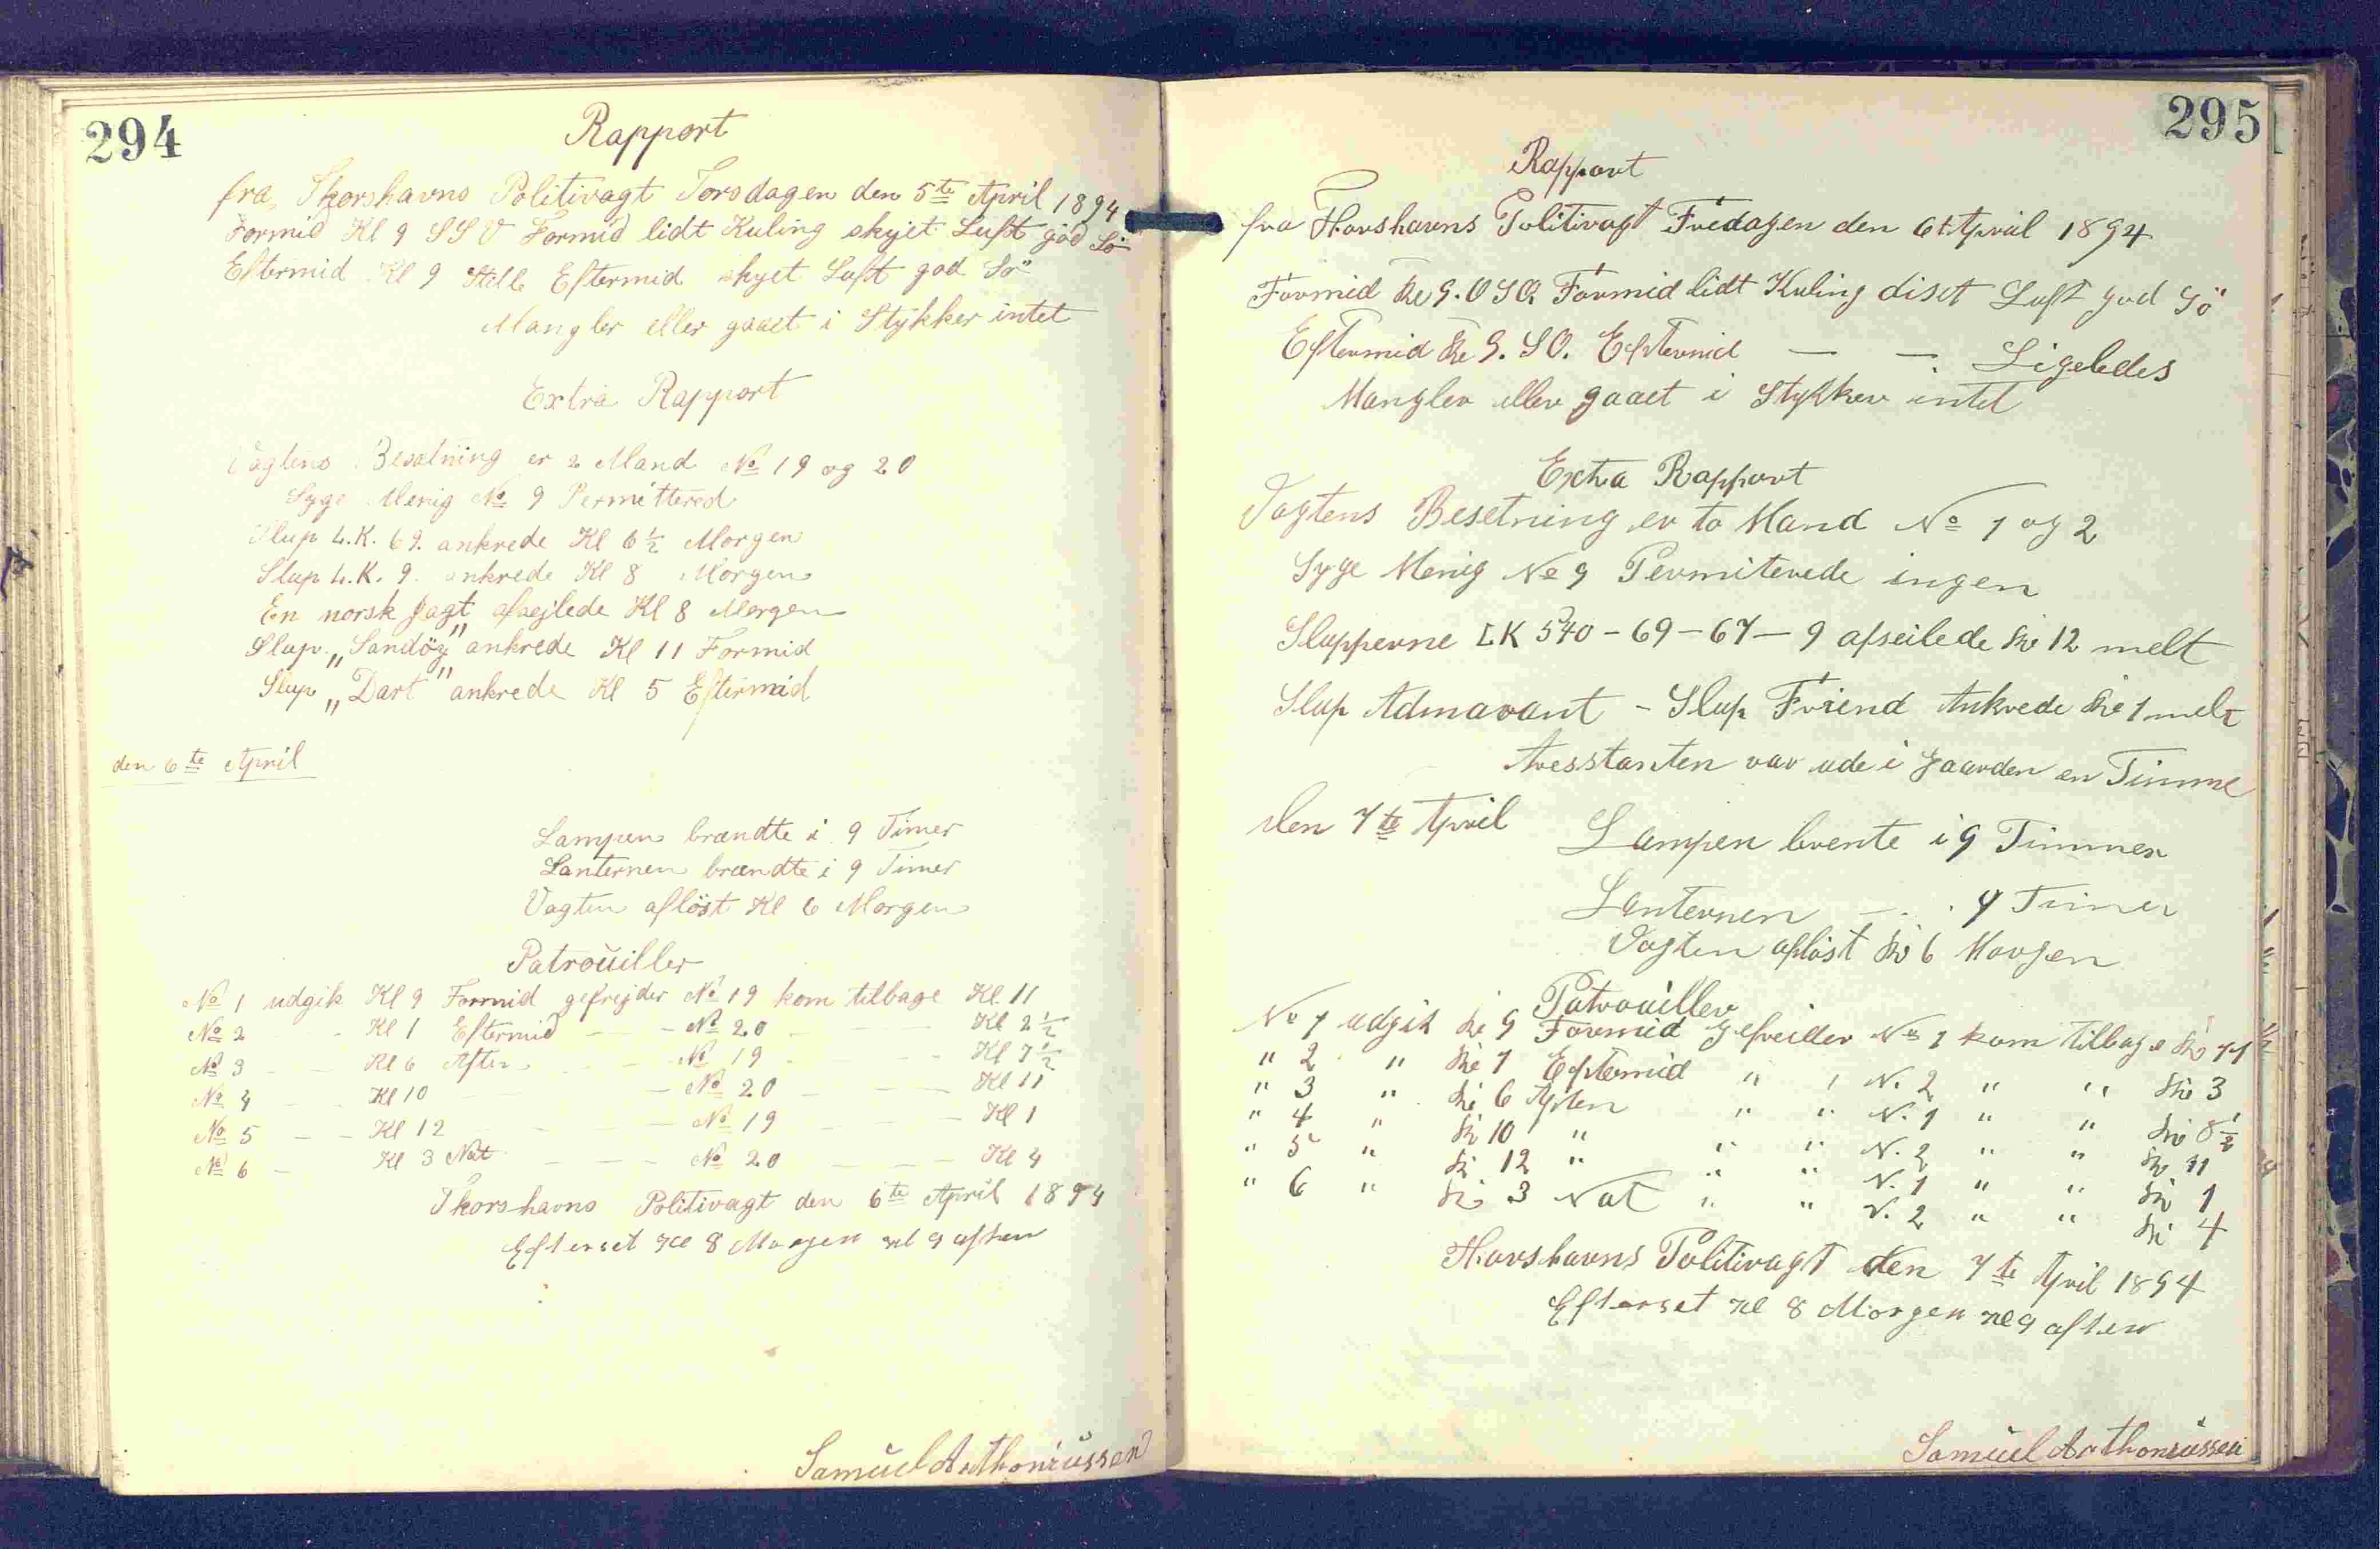 294
Rapport
fra Thorshavns Politivagt Torsdagen den 5te April 1894
Formid Kl 9 SSV Formid lidt Kuling skyet Luft god Sö
Eftermid Kl 9 Stille Eftermid skyet Luft god Sö
Mangler eller gaaet i Stykker intet
Extra Rapport
Vagtens Besætning er 2 Mand No 19 og 20
Syge Menig No 9 Permittered
Slup L.K. 69. ankrede Kl 6½ Morgen
Slup L.K. 9. ankrede Kl 8 Morgen
En norsk Jagt afsejlede Kl 8 Morgen
Slup „Sandöy" ankrede Kl 11 Formid
Slup „Dart" ankrede Kl 5 Eftermid
den 6te April
Lampen brændte i 9 Timer
Lanternen brændte i 9 Timer
Vagten aflöst Kl 6 Morgen
Patrouiller
No 1 udgik Kl 9 Formid gefrejder No 19 kom tilbage Kl. 11
No 2 - - Kl 1 Eftermid - - - No 20 - - - Kl 2½
No 3 - - Kl 6 Aften - - - No 19 - - - Kl 7½
No 4 - - Kl 10 - - - No 20 - - - Kl 11
No 5 - - Kl 12 - - - No 19 - - - Kl 1
No 6 - Kl 3 Nat - - - No 20 - - - Kl 4
Thorshavns Politivagt den 6te April 1894
Efterset Kl 8 Morgen Kl 9 aften
Samuel Anthoniussen
295
Rapport
fra Thorshavns Politivagt Fredagen den 6t April 1894
Formid Kl 9. OSO Formid lidt Kuling diset Luft god Sö
Eftermid Kl 9. SO. Eftermid — — . Ligeledes
Mangler eller gaaet i Stykker intet
Extra Rapport
Vagtens Besetning er to Mand No 1 og 2
Syge Menig No 9 Permiterede ingen
Slupperne LK 540 - 69 - 67 - 9 afseilede Kl 12 melt
Slup Admavant - Slup Friend Ankrede Kl 1 melt
Aresstanten var ude i Gaarden en Timme
den 7te April
Lampen brente i 9 Timmer
Lanternen — . . 9 Timer
Vagten aflöst Kl 6 Morgen
Patrouiller
No 1 udgik Kl 9 Formid Gefreider No 1 kom tilbage Kl 11
" 2 " Kl 1 Eftermid " " N. 2 " " Kl 3
" 3 " Kl 6 Aften " " N. 1 " " Kl 8½
" 4 " Kl 10 " " " N. 2 " " Kl 11
" 5 " Kl 12 " " " N. 1 " " Kl 1
" 6 " Kl 3 Nat " " N. 2 " " Kl 4
Thorshavns Politivagt den 7te April 1894
Efterset Kl 8 Morgen Kl 9 aften
Samuel Anthoniussen